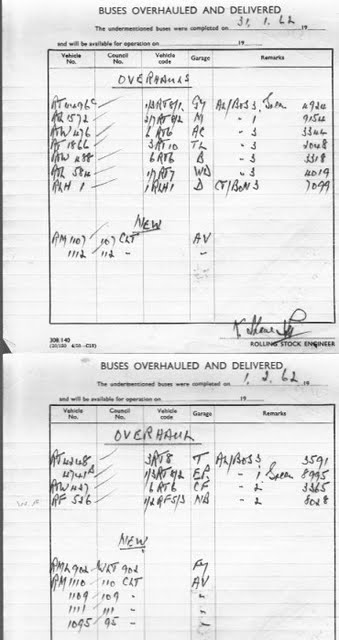 BUSES OVERHAULED AND DELIVERED
The undermentioned buses were completed on 31.1.62 19
and will be available for operation on 19
Vehicle No. Council No. Vehicle code Garage Remarks
OVERHAULS
GY AL/BOS 3 4924
RT 1572 M " 1 9154
RTW 476 6 RT6 AC " 3 3344
RT 1866 3 RT10 TL " 3
RTW 488 6 RT6 B " 3 3318
RTL 584 1/7 RT7 WD " 3 4019
RLH 1 1 RLH1 D 7099
NEW
RM 1107 107 CLT AV
1112 112 " "
ROLLING STOCK ENGINEER
BUSES OVERHAULED AND DELIVERED
The undermentioned buses were completed on 1.2.62 19
and will be available for operation on 19
Vehicle No. Council No. Vehicle code Garage Remarks
OVERHAUL
3RT8 T AL/BOS 3 3591
EP " 1 8995
RTW 427 6 RT6 CF " 2 3365
RF 526 1/2 RF5/3 NB " 2 8028
NEW
RML 902 WLT 902 FY
RM 1110 110 CLT AV
1109 109 " "
1111 111 " "
1095 95 " "